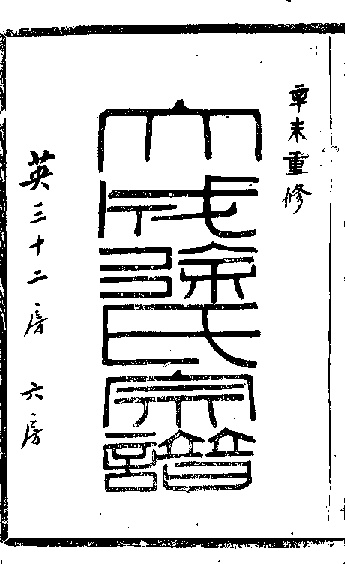 辛未重修
大成徐氏宗譜
英三十二房 六房